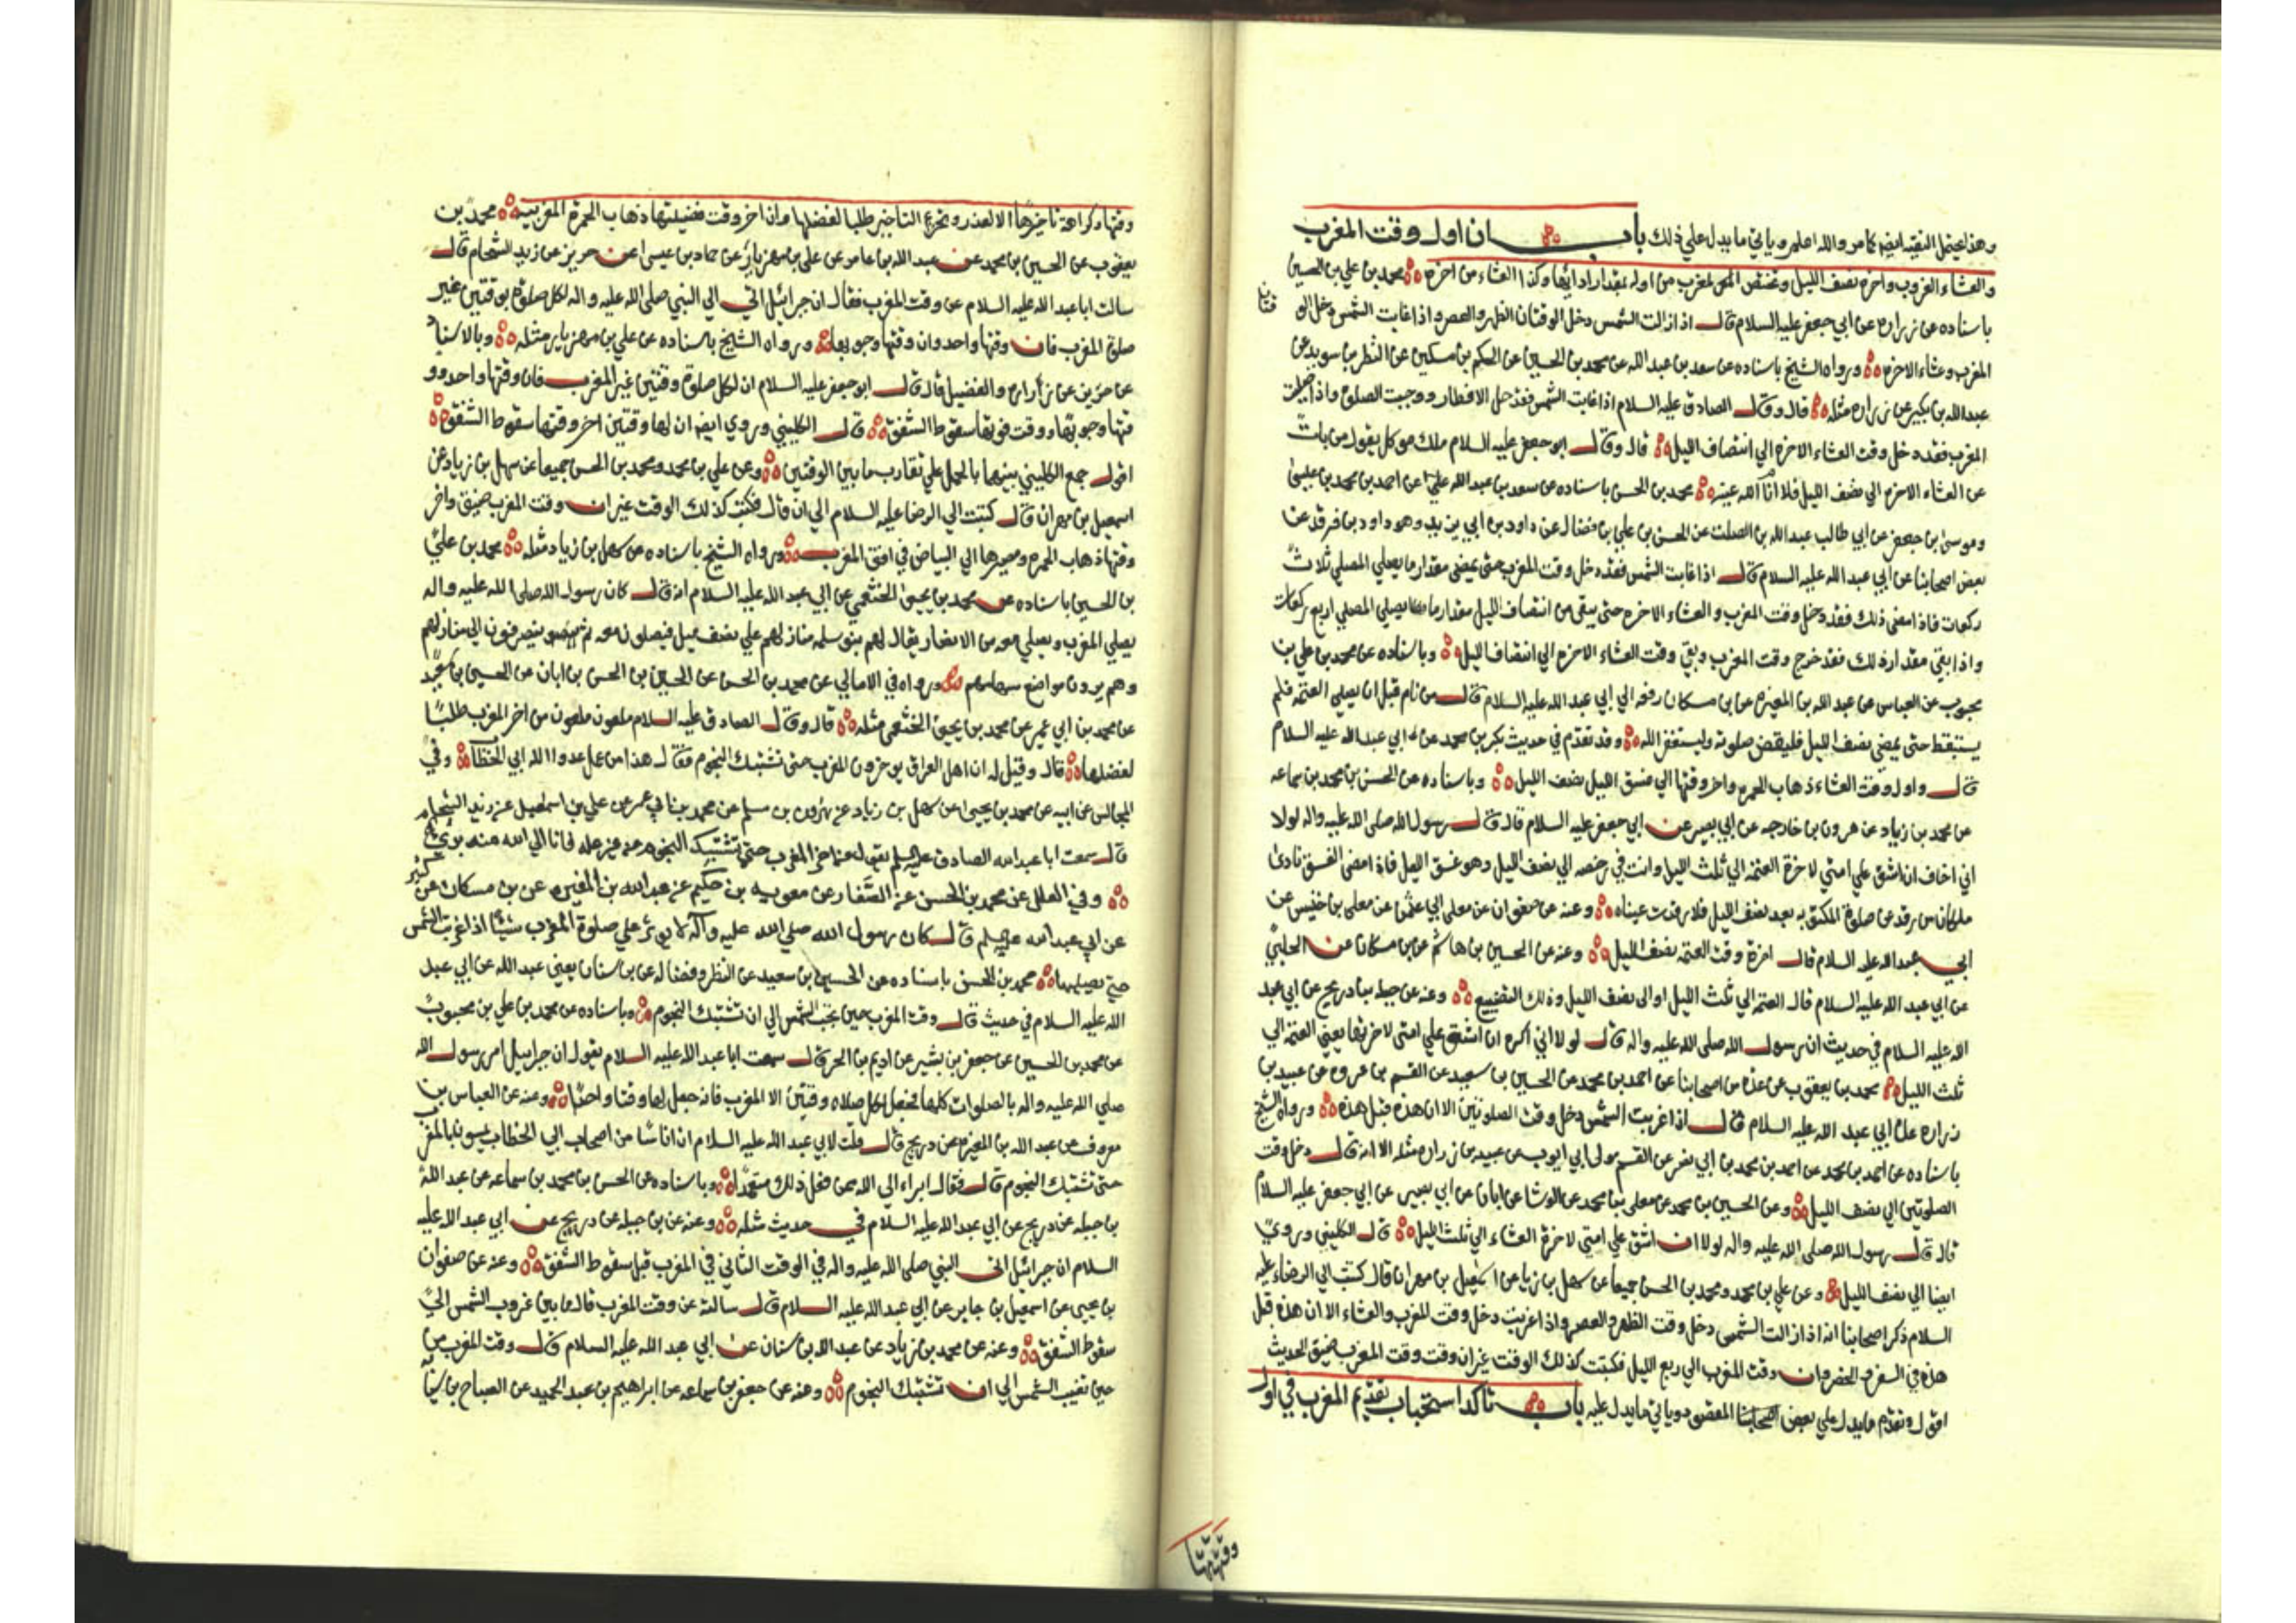 وهذا يحتمل التقيه ايضا كما مر والله اعلم وياتي ما يدل علي ذلك باب ان اول وقت المغرب
والعشاء الغروب واخره نصف الليل وتختص المغرب من اوله بمقدار ادائها وكذا العشاء من اخره محمد بن علي بن الحسين
باسناده عن زراره عن ابي جعفر عليه السلام قال اذا زالت الشمس دخل الوقتان الظهر والعصر واذا غابت الشمس دخل الو
قتان
المغرب وعشاء الاخره ورواه الشيخ باسناده عن سعد بن عبد الله عن محمد بن الحسين عن الحكم بن مسكين عن النظر بن سويد عن
عبد الله بن بكير عن زراره مثله قال وقال الصادق عليه السلام اذا غابت الشمس فقد حل الافطار ووجبت الصلوة واذا صليت
المغرب فقد دخل وقت العشاء الاخره الي انتصاف الليل قال وقال ابو جعفر عليه السلام ملك موكل يقول من بات
عن العشاء الاخره الي نصف الليل فلا انام الله عينه محمد بن الحسن باسناده عن سعد بن عبد الله عن احمد بن محمد بن عيسى
وموسى بن جعفر عن ابي طالب عبد الله بن الصلت عن الحسن بن علي بن فضال عن داود بن ابي يزيد وهو داود بن فرقد عن
بعض اصحابنا عن ابي عبد الله عليه السلام قال اذا غابت الشمس فقد دخل وقت المغرب حتى يمضي مقدار ما يصلي المصلي ثلاث
ركعات فاذا مضى ذلك فقد دخل وقت المغرب والعشاء الاخره حتى يبقى من انتصاف الليل مقدار ما يصلي المصلي اربع ركعات
واذا بقي مقدار ذلك فقد خرج وقت المغرب وبقي وقت العشاء الاخره الي انتصاف الليل وباسناده عن محمد بن علي بن
محبوب عن العباس عن عبد الله بن المغيره عن بن مسكان رفعه الي ابي عبد الله عليه السلام قال من نام قبل ان يصلي العتمه فلم
يستيقظ حتى يمضي نصف الليل فليقض صلوته وليستغفر الله وقد تقدم في حديث بكر بن محمد عن ابي عبد الله عليه السلام
قال واول وقت العشاء ذهاب الحمره واخر وقتها الي غسق الليل نصف الليل وباسناده عن الحسن بن محمد بن سماعه
عن محمد بن زياد عن هرون بن خارجه عن ابي بصير عن ابي جعفر عليه السلام قال قال رسول الله صلى الله عليه واله لولا
اني اخاف ان اشق علي امتي لاخرة العتمه الي ثلث الليل وانت في رخصه الي نصف الليل وهو غسق الليل فاذا مضى الغسق نادى
ملكان من رقد عن صلوة المكتوبه بعد نصف الليل فلا رقدت عيناه وعنه عن صفوان عن معلى ابي عثمن عن معلى بن خنيس عن
ابي عبد الله عليه السلام قال اخرة وقت العتمه نصف الليل وعنه عن الحسين بن هاشم عن بن مسكان عن الحلبي
عن ابي عبد الله عليه السلام قال العتمه الي ثلث الليل او الى نصف الليل وذلك التضييع وعنه عن جبله عن ذريح عن ابي عبد
الله عليه السلام في حديث ان رسول الله صلى الله عليه واله قال لولا اني اكره ان اشق علي امتى لاخرتها يعني العتمة الي
ثلث الليل محمد بن يعقوب عن عدة من اصحابنا عن احمد بن محمد عن الحسين بن سعيد عن القسم بن عروه عن عبيد بن
زراره عن ابي عبد الله عليه السلام قال اذا غربت الشمس دخل وقت الصلوتين الا ان هذه قبل هذه ورواه الشيخ
باسناده عن احمد بن محمد عن احمد بن محمد بن ابي نصر عن القسم مولى ابي ايوب عن عبيد بن زراره مثله الا انه قال دخل وقت
الصلوتين الي نصف الليل وعن الحسين بن محمد عن معلى بن محمد عن الوشا عن ابان عن ابي بصير عن ابي جعفر عليه السلام
قال قال رسول الله صلى الله عليه واله لولا ان اشق علي امتي لاخرة العشاء الي ثلث الليل قال الكليني وروي
ايضا الي نصف الليل وعن علي بن محمد ومحمد بن الحسن جميعا عن سهل بن زياد عن اسمعيل بن مهران قال كتبت الي الرضا عليه
السلام ذكر اصحابنا انه اذا زالت الشمس دخل وقت الظهر والعصر واذا غربت دخل وقت المغرب والعشاء الا ان هذه قبل
هذه في السفر والحضر وان وقت المغرب الي ربع الليل فكتبت كذلك الوقت غير ان وقت وقت المغرب ضيق الحديث
اقول وتقدم ما يدل علي بعض المقصود وياتي ما يدل عليه باب تاكد استحباب تقديم المغرب في اول
وقتها
وقتها وكراهة تاخيرها الا لعذر وتحريم التاخير طلبا لفضلها وان اخر وقت فضيلتها ذهاب الحمرة المغربيه محمد بن
يعقوب عن الحسين بن محمد عن عبد الله بن عامر عن علي بن مهزيار عن حماد بن عيسى عن حريز عن زيد الشحام قال
سالت ابا عبد الله عليه السلام عن وقت المغرب فقال ان جبرائيل اتي الي النبي صلى الله عليه واله لكل صلوة بوقتين غير
صلوة المغرب فان وقتها واحد وان وقتها وجوبها ورواه الشيخ باسناده عن علي بن مهزيار مثله وبالاسناد
عن حريز عن زراره والفضيل قال قال ابو جعفر عليه السلام ان لكل صلوة وقتين غير المغرب فان وقتها واحد وو
قتها وجوبها ووقت فوتها سقوط الشفق قال الكليني وروي ايضا ان لها وقتين اخر وقتها سقوط الشفق
اقول جمع الكليني بينهما بالحمل علي تقارب ما بين الوقتين وعن علي بن محمد ومحمد بن الحسن جميعا عن سهل بن زياد عن
اسمعيل بن مهران قال كتبت الي الرضا عليه السلام الي ان قال فكتب كذلك الوقت غير ان وقت المغرب ضيق واخر
وقتها ذهاب الحمره ومصيرها الي البياض في افق المغرب ورواه الشيخ باسناده عن سهل بن زياد مثله محمد بن علي
بن الحسين باسناده عن محمد بن يحيى الخثعمي عن ابي عبد الله عليه السلام انه قال كان رسول الله صلى الله عليه واله
يصلي المغرب ويصلي معه من الانصار يقال لهم بنو سلمه منازلهم علي نصف ميل فيصلون معه ثم ينصرفون الي منازلهم
وهم يرون مواضع سهامهم ورواه في الامالي عن محمد بن الحسن عن الحسين بن الحسن بن ابان عن الحسين بن سعيد
عن محمد بن ابي عمير عن محمد بن يحيى الخثعمي مثله قال وقال الصادق عليه السلام ملعون ملعون من اخر المغرب طلبا
لفضلها قال وقيل له ان اهل العراق يوخرون المغرب حتى تشتبك النجوم فقال هذا من عمل عدوا الله ابي الخطاب وفي
المجالس عن ابيه عن محمد بن يحيى عن سهل بن زياد عن هرون بن مسلم عن محمد بن ابي عمير عن علي بن اسمعيل عن زيد الشحام
قال سمعت ابا عبد الله الصادق عليه السلم يقول من اخر المغرب حتى تشتبك النجوم من غير عله فانا الي الله منه بريء
وفي العلل عن محمد بن الحسن عن الصفار عن معويه بن حكيم عن عبد الله بن المغيره عن بن مسكان عن
عن ابي عبد الله عليه السلم قال كان رسول الله صلي الله عليه وآله لا يوثر علي صلوة المغرب شيئا اذا غربت الشمس
حتي يصليها محمد بن الحسن باسناده عن الحسين بن سعيد عن النظر وفضاله عن بن سنان يعني عبد الله عن ابي عبد
الله عليه السلام في حديث قال وقت المغرب حين تجب الشمس الي ان تشتبك النجوم وباسناده عن محمد بن علي بن محبوب
عن محمد بن الحسين عن جعفر بن بشير عن اديم بن الحر قال سمعت ابا عبد الله عليه السلام يقول ان جبرائيل امر رسول الله
صلي الله عليه واله بالصلوات كلها فجعل لكل صلاه وقتين الا المغرب فانه جعل لها وقتا واحدا وعنه عن العباس بن
معروف عن عبد الله بن المغيره عن ذريح قال قلت لابي عبد الله عليه السلام ان اناسا من اصحاب ابي الخطاب يمسون بالمغرب
حتى تشتبك النجوم قال فقال ابراء الي الله ممن فعل ذلك متعمدا وباسناده عن الحسن بن محمد بن سماعه عن عبد الله
بن جبله عن ذريح عن ابي عبد الله عليه السلام في حديث مثله وعنه عن بن جبله عن ذريح عن ابي عبد الله عليه
السلام ان جبرائيل اتى النبي صلى الله عليه واله في الوقت الثاني في المغرب قبل سقوط الشفق وعنه عن صفوان
بن يحيى عن اسمعيل بن جابر عن ابي عبد الله عليه السلام قال سالته عن وقت المغرب قال ما بين غروب الشمس الي
سقوط الشفق وعنه عن محمد بن زياد عن عبد الله بن سنان عن ابي عبد الله عليه السلام قال وقت المغرب من
حين تغيب الشمس الي ان تشتبك النجوم وعنه عن جعفر بن سماعه عن ابراهيم بن عبد الحميد عن الصباح بن سيابه